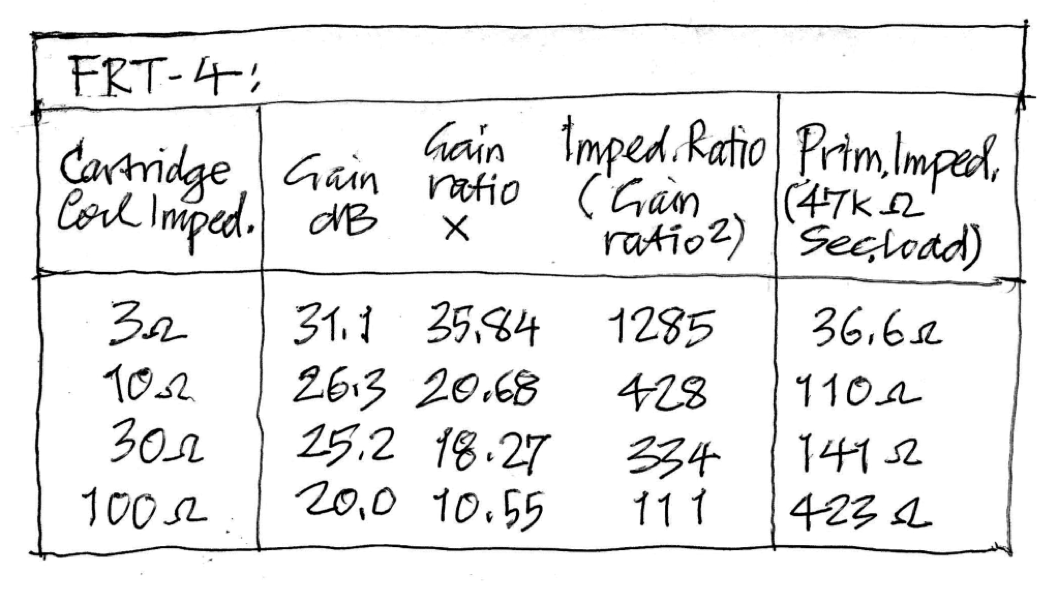 FRT-4:
Cartridge Coil Imped.
Gain dB
Gain ratio X
Imped. Ratio (Gain ratio²)
Prim. Imped. (47kΩ Sec. load)
3Ω 31.1 35.84 1285 36.6Ω
10Ω 26.3 20.68 428 110Ω
30Ω 25.2 18.27 334 141Ω
100Ω 20.0 10.55 111 423Ω